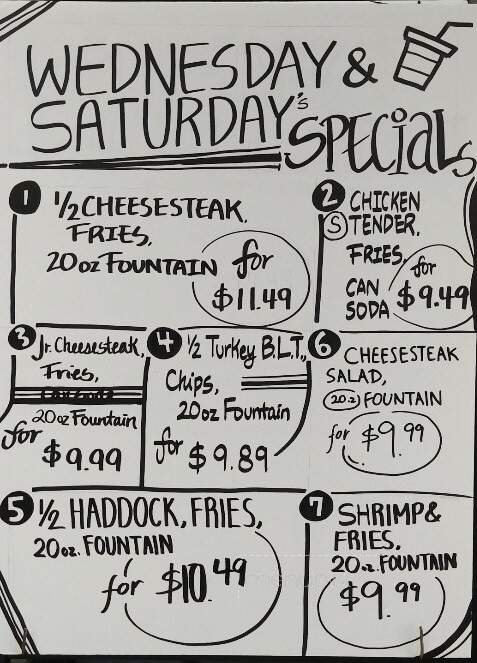 WEDNESDAY &
SATURDAY's
SPECiaLs
1 1/2 CHEESESTEAK,
FRIES,
20 oz FOUNTAIN for
$11.49
2 CHICKEN
(S) TENDER,
FRIES,
for
CAN
SODA $9.49
3 Jr. Cheesesteak,
Fries,
20oz Fountain
for
$9.99
4 1/2 Turkey B.L.T.,
Chips,
20oz Fountain
for $9.89
6 CHEESESTEAK
SALAD,
20.z FOUNTAIN
for $9.99
5 1/2 HADDOCK, FRIES,
20oz. FOUNTAIN
for $10.49
7 SHRIMP &
FRIES.
20.z. FOUNTAIN
$9.99